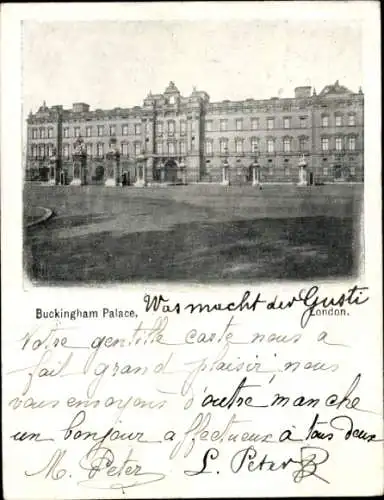 Was macht der Gusti
Buckingham Palace. London.
Votre gentille carte nous a
fait grand plaisir nous
vous envoyons d'outre manche
un bonjour affectueux à tous deux
M. Peter L. Peter